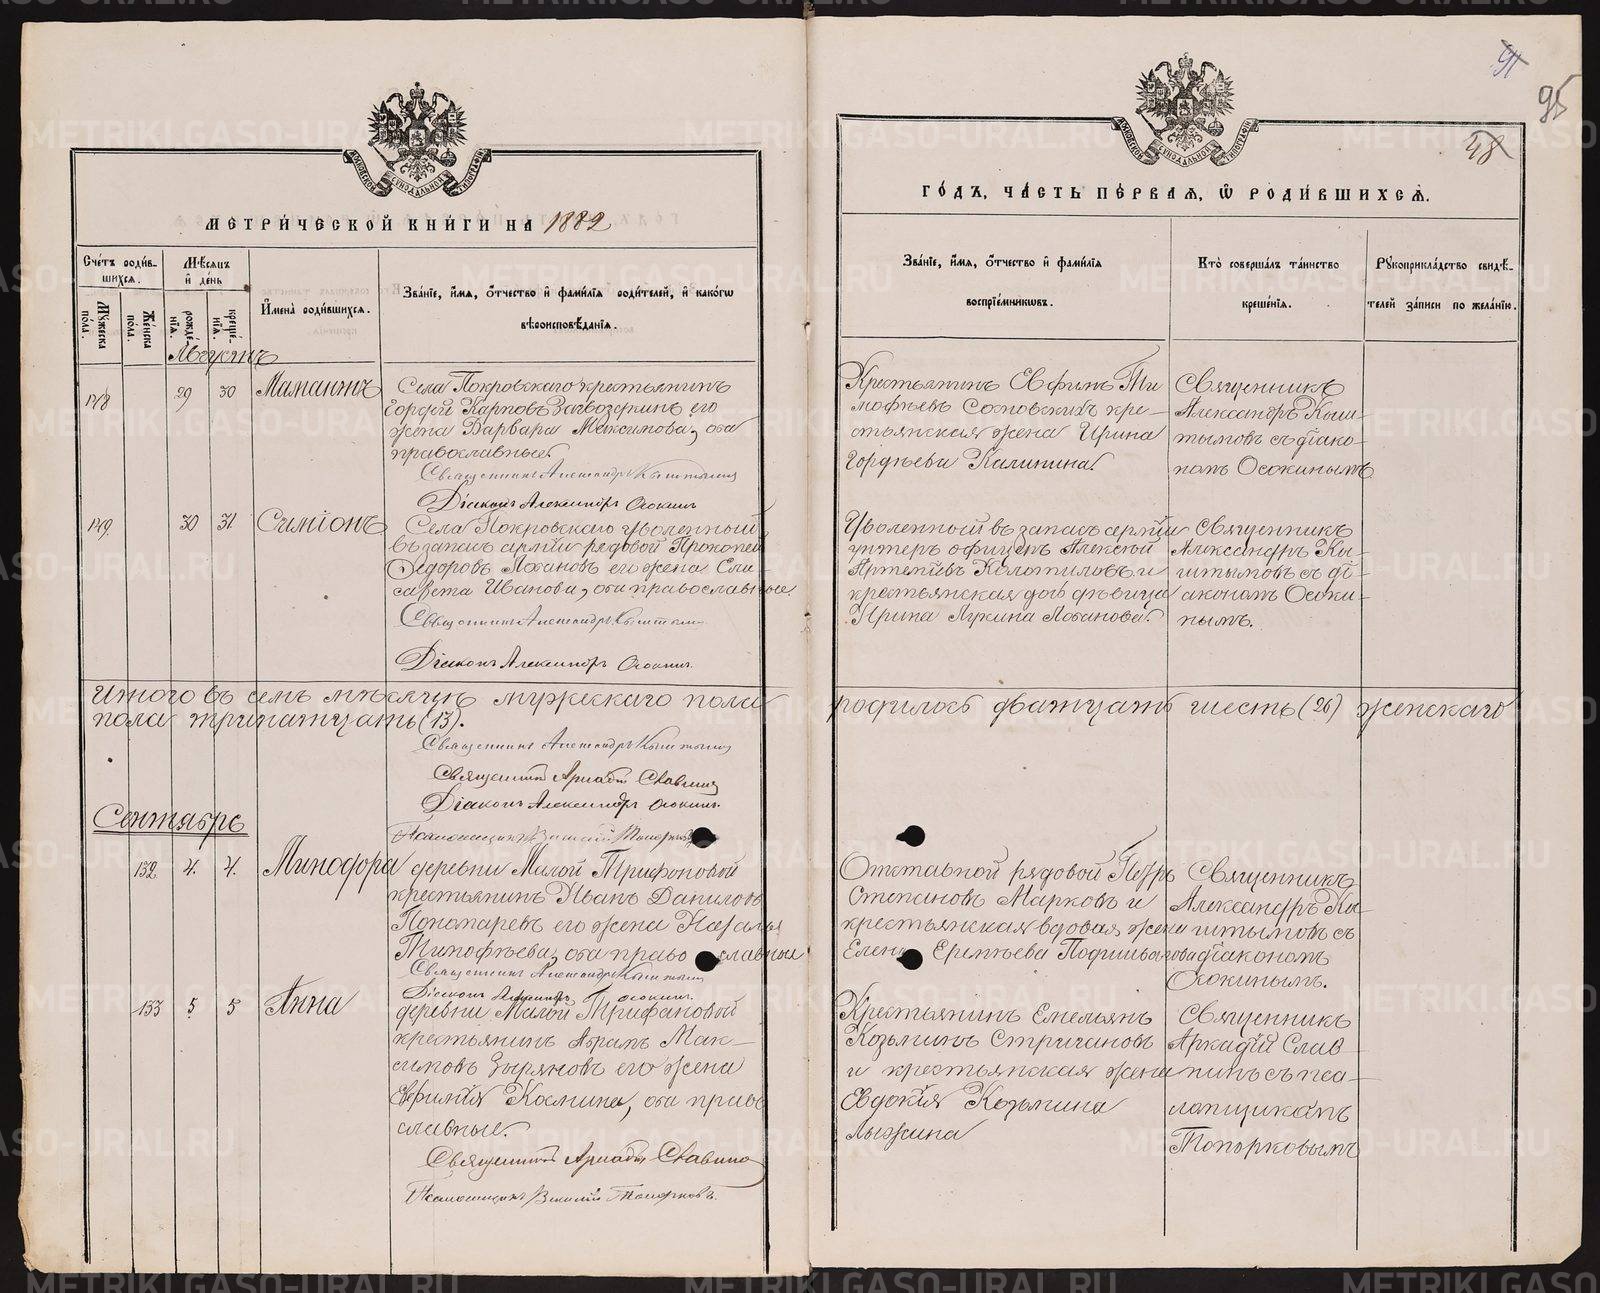 МЕТРИ́ЧЕСКОЙ КНИ́ГИ НА 1882
ГО́ДЪ, ЧА́СТЬ ПЕ́РВАЯ, Ѡ РОДИ́ВШИХСЯ.
91
95
48
Сче́тъ роди́вшихся.
Му́жеска по́ла.
Же́нска по́ла.
Мѣ́сяцъ и де́нь
рожде́нїя.
креще́нїя.
И҆мена̀ роди́вшихся.
Зва́нїе, и҆́мя, ѻ҆́тчество и҆ фами́лїя роди́телей, и҆ како́гѡ
вѣроисповѣ́данїя.
Зва́нїе, и҆́мя, ѻ҆́тчество и҆ фами́лїя
воспрїе́мникѡвъ.
Кто̀ соверша́лъ та́инство
креще́нїя.
Рꙋкоприкла́дство свидѣ́-
телей за́писи по жела́нїю.
Августъ
128
29
30
Мамантъ
Села Покровскаго крестьянинъ
Гордѣй Карповъ Загвоздкинъ его
жена Варвара Максимова, оба
православные.
Священникъ Александръ Кыштымовъ
Діаконъ Александръ Осокинъ
Крестьянинъ Евфимъ Ти
мофѣевъ Сосновскихъ кре-
стьянская жена Ирина
Гордѣева Калинина.
Священникъ
Александръ Кыш-
тымовъ съ діако-
номъ Осокинымъ
129.
30
31
Симіонъ
Села Покровскаго уволенный
въ запасъ арміи рядовой Прокопей
Федоровъ Лобановъ его жена Ели
савета Иванова, оба православные.
Священникъ Александръ Кыштымовъ
Діаконъ Александръ Осокинъ.
Уволенный въ запасъ арміи
унтеръ офицеръ Алексѣй
Артемьевъ Колотиловъ и
крестьянская дочь дѣвица
Ирина Лукина Лобанова.
Священникъ
Александръ Кы-
штымовъ съ ді-
акономъ Осоки-
нымъ.
Итого въ семъ мѣсяцѣ мужескаго пола родилось двадцать шесть (26) женскаго
пола тринатцать (13).
Священникъ Александръ Кыштымовъ
Священникъ Аркадій Славнинъ
Діаконъ Александръ Осокинъ.
Псаломщикъ Василій Топорковъ
Сентябрь
132.
4.
4.
Минодора
деревни Малой Трифоновой
крестьянинъ Иванъ Даниловъ
Пономаревъ его жена Наталья
Тимофѣева, оба православные
Священникъ Александръ Кыштымовъ
Діаконъ Александръ Осокинъ.
Отставной рядовой Петръ
Степановъ Марковъ и
крестьянская вдовая жена
Елена
Священникъ
Александръ Кы-
штымовъ съ
діакономъ
Осокинымъ.
133
5
5
Анна
деревни Малой Трифановой
крестьянинъ Абрамъ Мак-
симовъ Зыряновъ его жена
Евфимія Космина, оба право
славные.
Священникъ Аркадій Славнинъ
Псаломщикъ Василій Топорковъ.
Крестьянинъ Емельянъ
Козьминъ Стригановъ
и крестьянская жена
Евдокія Козьмина
Лыжина
Священникъ
Аркадій Слав-
нинъ съ пса-
ломщикомъ
Топорковымъ